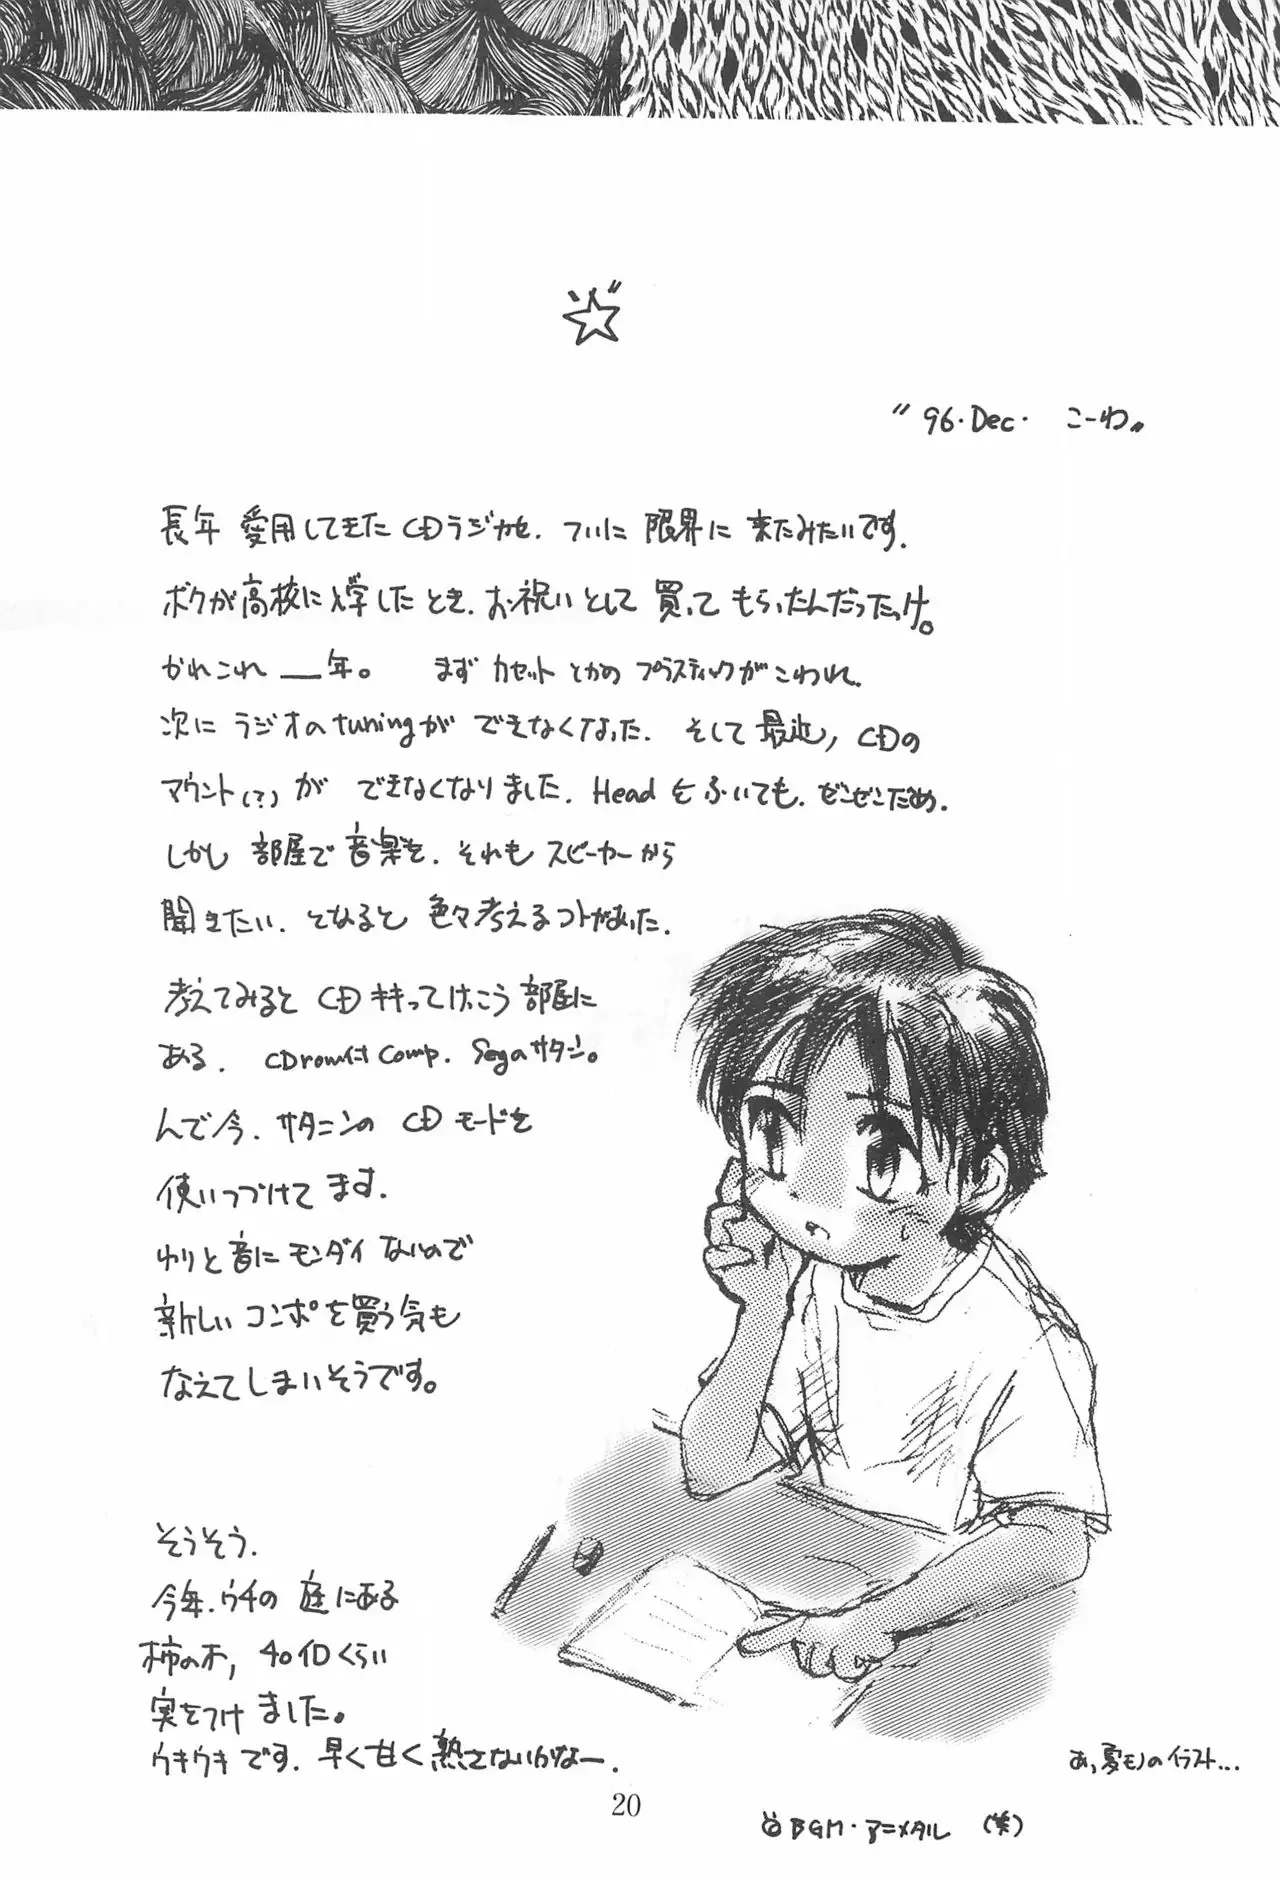 "96.Dec. こーわ"
長年愛用してきたCDラジカセ、ついに限界に来たみたいです。
ボクが高校に入学したとき、お祝いとして買ってもらったんだったっけ。
かれこれ__年。 まずカセットとかのプラスティックがこわれ、
次にラジオのtuningができなくなった。そして最近,CDの
マウント(?)ができなくなりました。Headをふいても、ぜんぜんだめ。
しかし部屋で音楽を、それもスピーカーから
聞きたい。となると色々考えるコトがあった。
考えてみるとCDキキってけっこう部屋に
ある。CDrom付Comp. Segaサターン。
んで今、サターンのCDモードを
使いつづけてます。
わりと音にモンダイないので
新しいコンポを買う気も
なえてしまいそうです。
そうそう。
今年、ウチの庭にある
柿の木,40個くらい
実をつけました。
ウキウキです。早く甘く熟さないかなー。
あ,夏モノのイラスト...
20
BGM・アニメタル (笑)